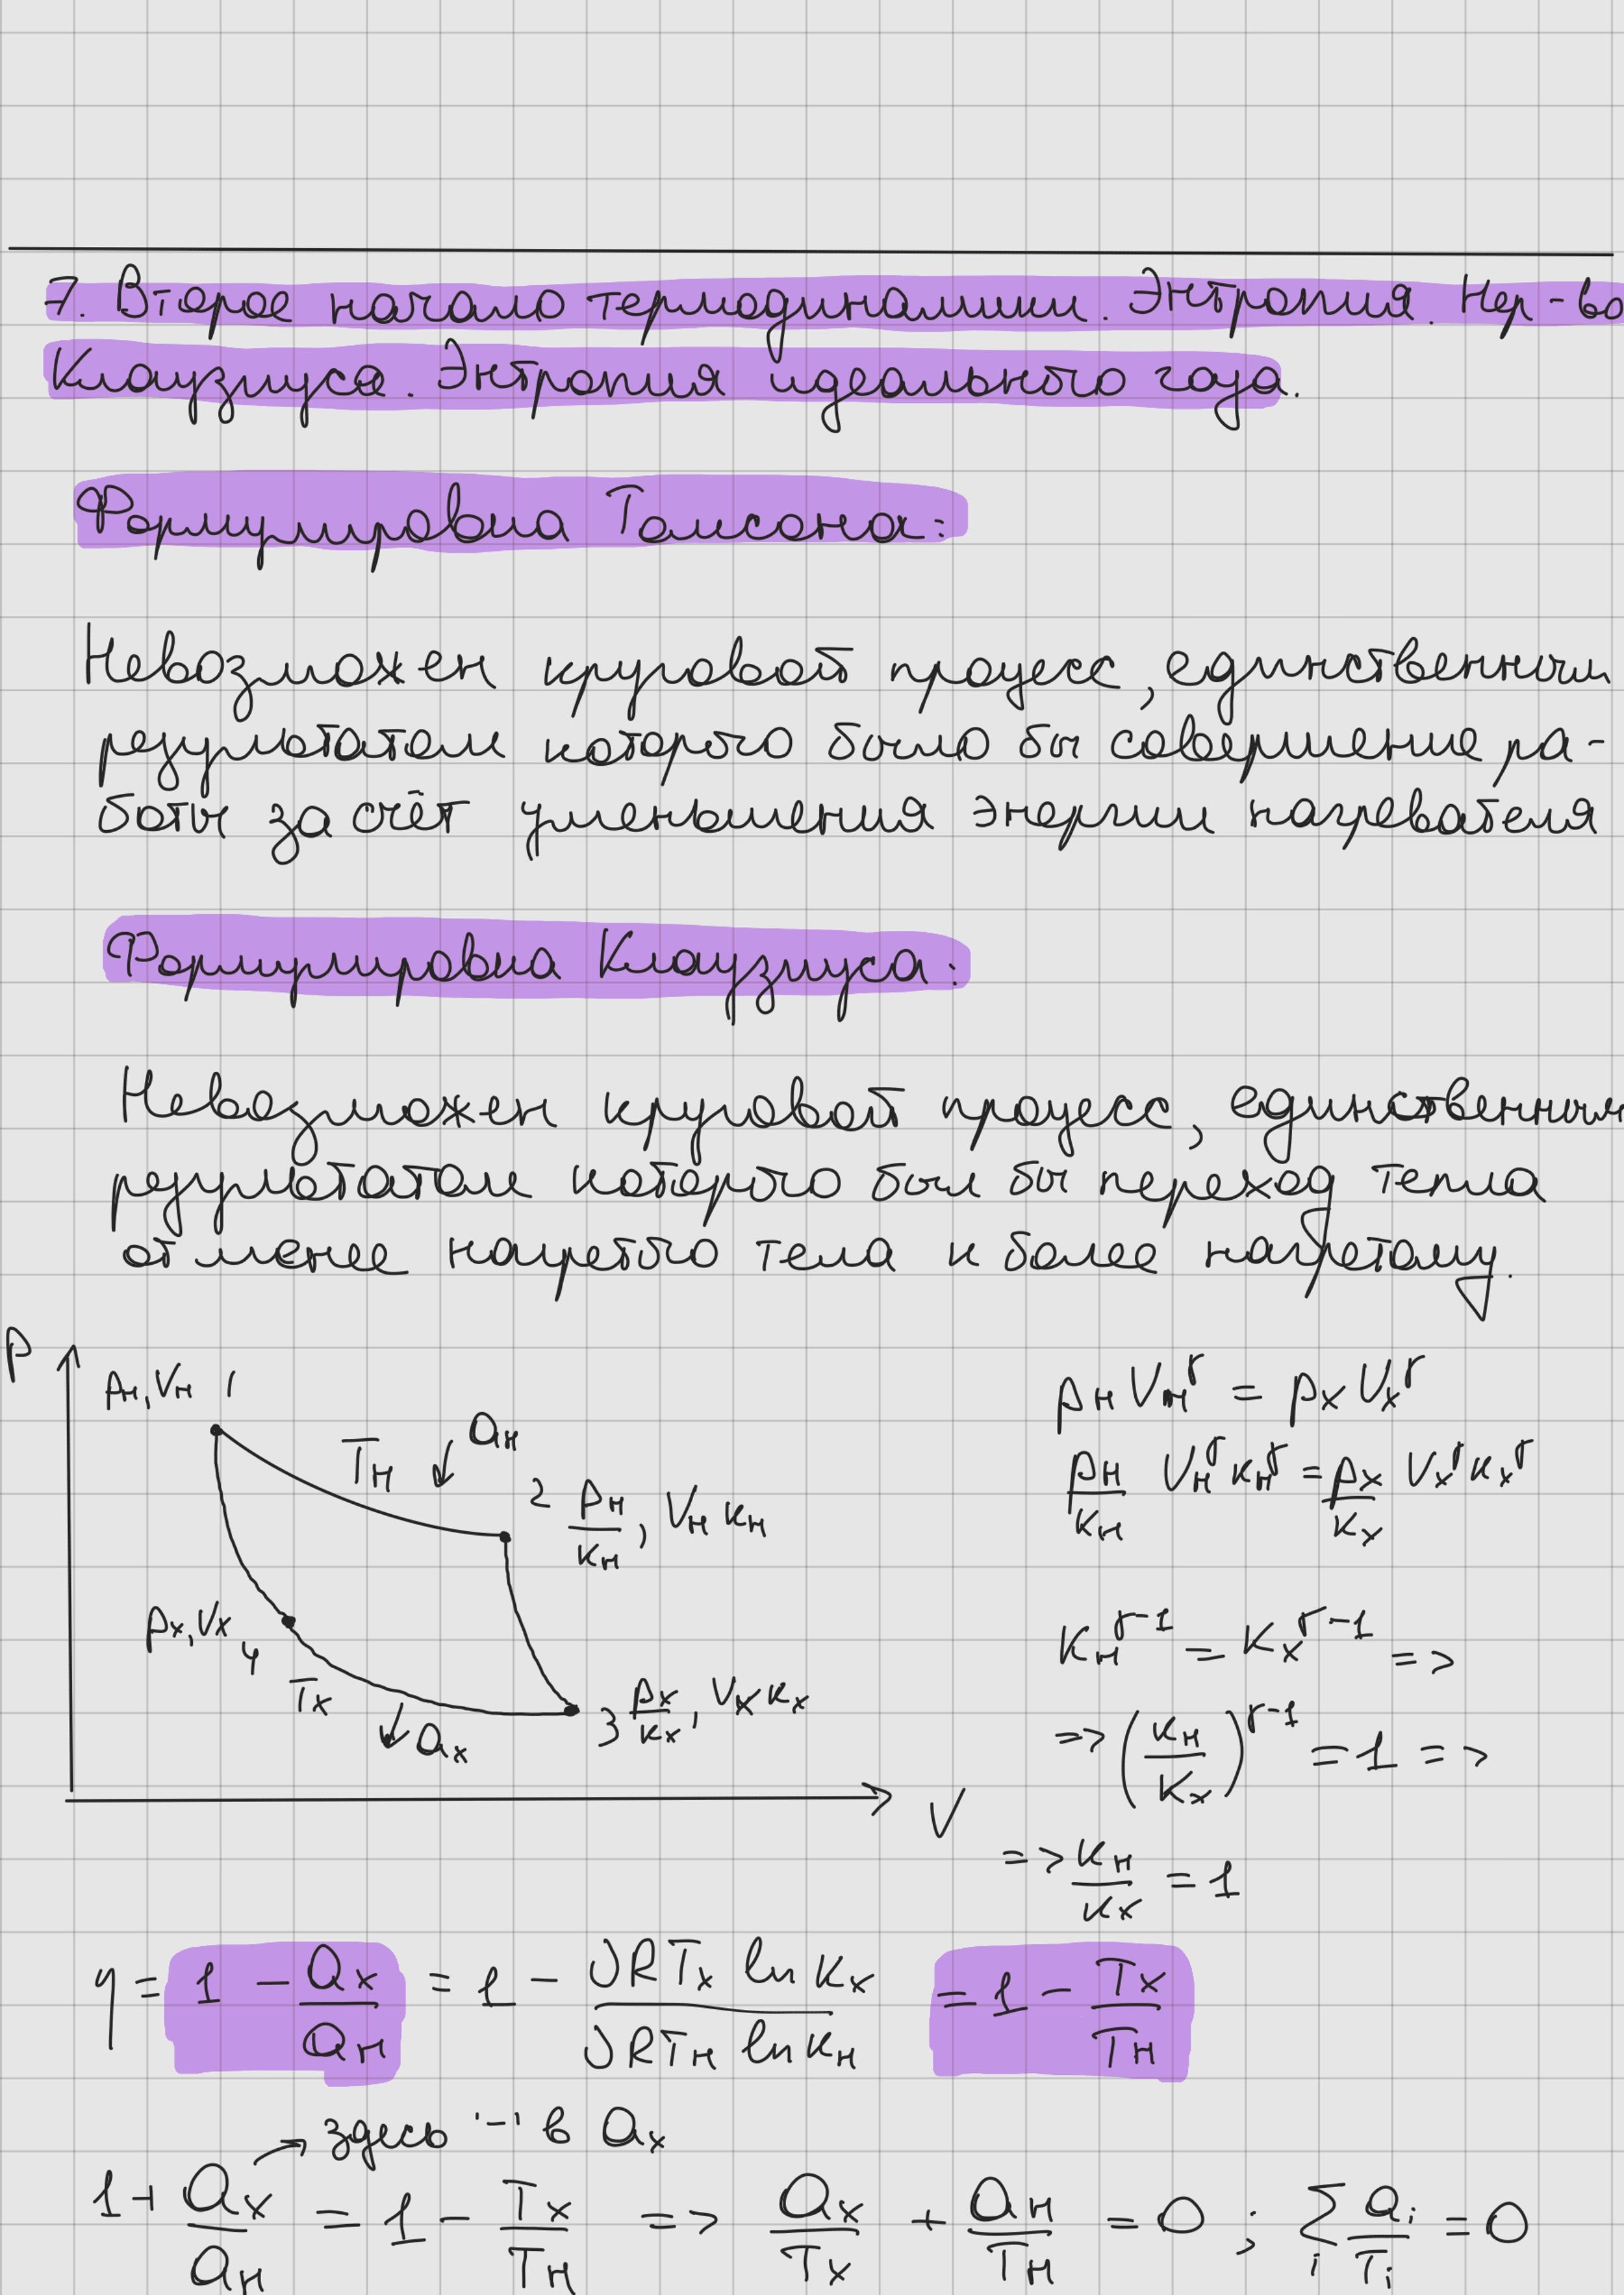 7. Второе начало термодинамики. Энтропия. Нер-во
Клаузиуса. Энтропия идеального газа.
Формулировка Томсона:
Невозможен круговой процесс, единственным
результатом которого было бы совершение ра-
боты за счёт уменьшения энергии нагревателя
Формулировка Клаузиуса:
Невозможен круговой процесс, единственным
результатом которого был бы переход тепла
от менее нагретого тела к более нагретому.
P
pн, Vн 1
Tн ↓ Qн
2 pн/kн, Vн kн
px, Vx 4
Tx
↓ Qx
3 px/kx, Vx kx
V
pн Vн^γ = px Vx^γ
pн/kн Vн^γ kн^γ = px/kx Vx^γ kx^γ
kн^γ-1 = kx^γ-1 =>
=> (kн/kx)^γ-1 = 1 =>
=> kн/kx = 1
η = 1 - Qx/Qн = 1 - νRTx ln kx / νRTн ln kн = 1 - Tx/Tн
→ здесь '-' в Qx
1 + Qx/Qн = 1 - Tx/Tн => Qx/Tx + Qн/Tн = 0 ; ∑i Qi/Ti = 0